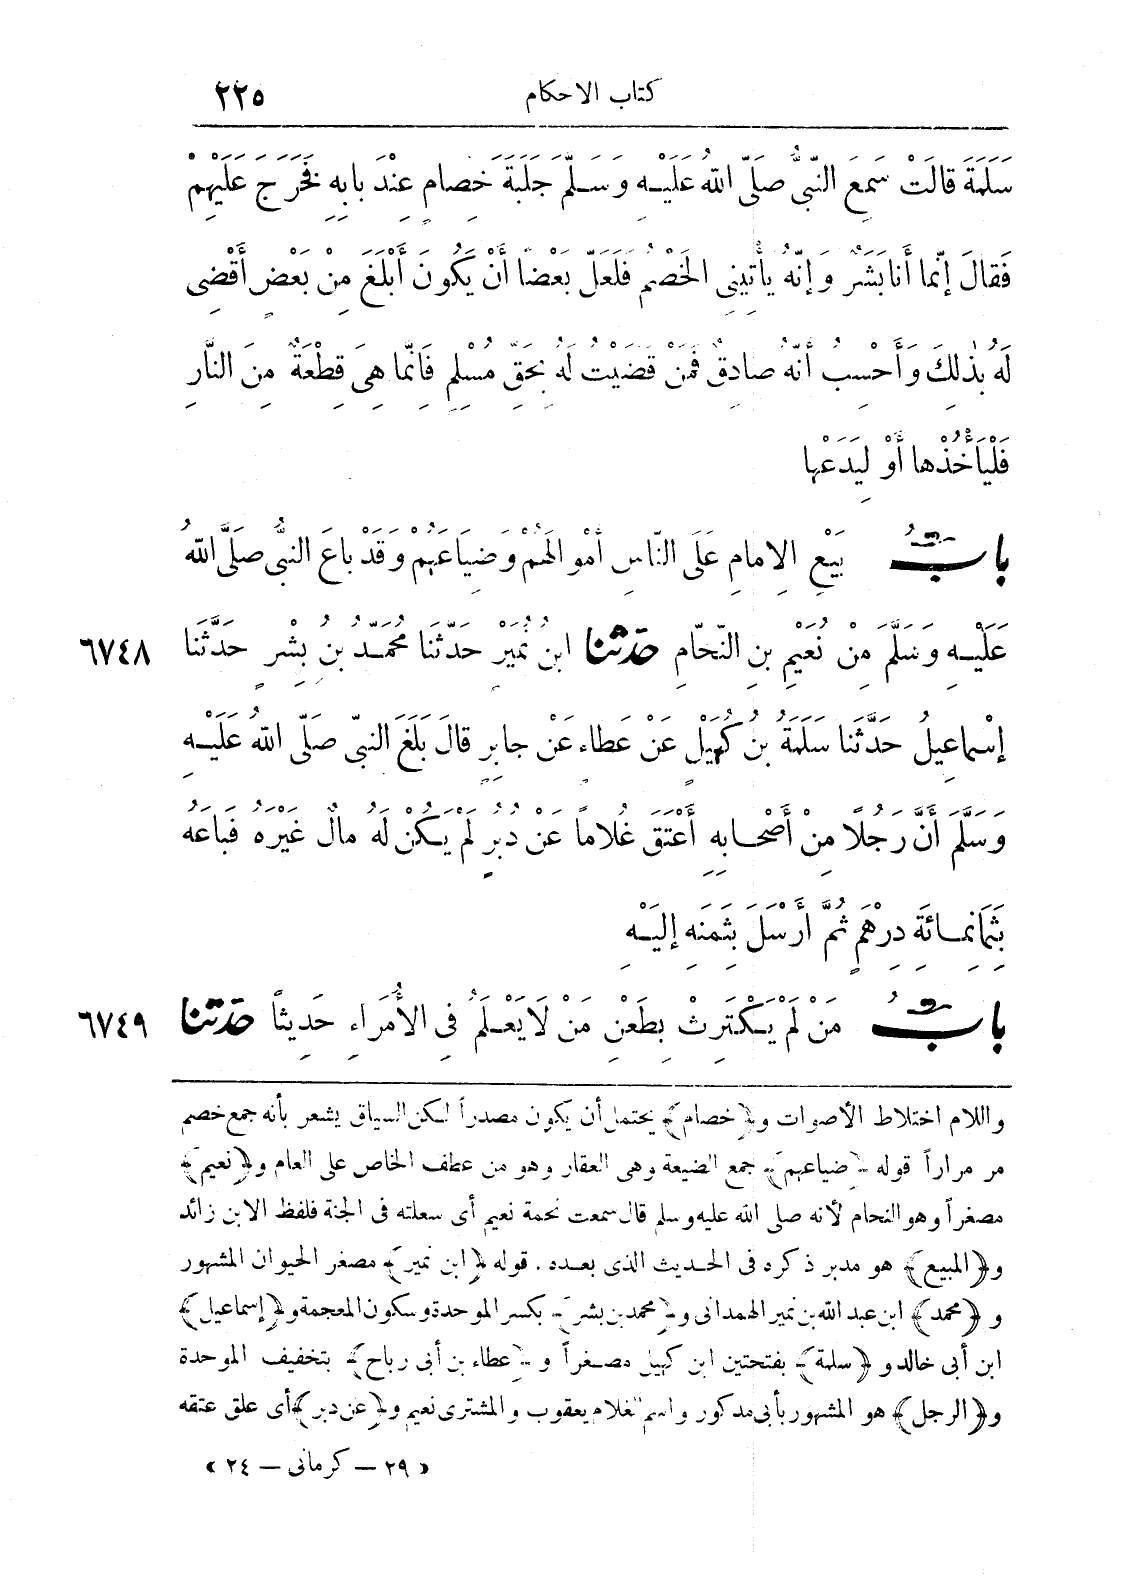 كتاب الاحكام ٢٢٥
سَلَمَةَ قالَتْ سَمِعَ النَّبِيُّ صَلَّى اللهُ عَلَيْهِ وَسَلَّمَ جَلَبَةَ خِصامٍ عِنْدَ بابِهِ فَخَرَجَ عَلَيْهِمْ
فَقالَ إِنَّما أَنا بَشَرٌ وَإِنَّهُ يَأْتِينِي الخَصْمُ فَلَعَلَّ بَعْضًا أَنْ يَكُونَ أَبْلَغَ مِنْ بَعْضٍ أَقْضِي
لَهُ بِذٰلِكَ وَأَحْسِبُ أَنَّهُ صادِقٌ فَمَنْ قَضَيْتُ لَهُ بِحَقِّ مُسْلِمٍ فَإِنَّما هِيَ قِطْعَةٌ مِنَ النَّارِ
فَلْيَأْخُذْها أَوْ لِيَدَعْها
بابُ بَيْعِ الإِمامِ عَلَى النَّاسِ أَمْوالَهُمْ وَضِياعَهُمْ وَقَدْ باعَ النبيُّ صَلَّى اللهُ
عَلَيْهِ وَسَلَّمَ مِنْ نُعَيْمِ بنِ النَّحَّامِ حَدَّثَنا ابنُ نُمَيْرٍ حَدَّثَنَا مُحَمَّدُ بنُ بِشْرٍ حَدَّثَنَا ٦٧٤٨
إِسْماعِيلُ حَدَّثَنَا سَلَمَةُ بنُ كُهَيْلٍ عَنْ عَطاءٍ عَنْ جابِرٍ قالَ بَلَغَ النبيَّ صَلَّى اللهُ عَلَيْهِ
وَسَلَّمَ أَنَّ رَجُلًا مِنْ أَصْحابِهِ أَعْتَقَ غُلامًا عَنْ دُبُرٍ لَمْ يَكُنْ لَهُ مالٌ غَيْرَهُ فَباعَهُ
بِثَمانِمائَةِ دِرْهَمٍ ثُمَّ أَرْسَلَ بِثَمَنِهِ إِلَيْهِ
بابُ مَنْ لَمْ يَكْتَرِثْ بِطَعْنِ مَنْ لَا يَعْلَمُ فِي الأُمَرَاءِ حَدِيثًا حَدَّثَنا ٦٧٤٩
واللام اختلاط الأصوات و﴿خصام﴾ يحتمل أن يكون مصدراً لكن السياق يشعر بأنه جمع خصم
مر مراراً قوله ﴿ضياعهم﴾ جمع الضيعة وهى العقار وهو من عطف الخاص على العام و﴿نعيم﴾
مصغراً وهو النحام لأنه صلى الله عليه وسلم قال سمعت نحمة نعيم أى سعلته فى الجنة فلفظ الابن زائد
و﴿المبيع﴾ هو مدبر ذكره فى الحديث الذى بعده . قوله ﴿ابن نمير﴾ مصغر الحيوان المشهور
و ﴿محمد﴾ ابن عبد الله بن نمير الهمدانى و﴿محمد بن بشر﴾ بكسر الموحدة وسكون المعجمة و﴿إسماعيل﴾
ابن أبى خالد و ﴿سلمة﴾ بفتحتين ابن كهيل مصغراً و ﴿عطاء بن أبى رباح﴾ بتخفيف الموحدة
و﴿الرجل﴾ هو المشهور بأبى مدكور واسم الغلام يعقوب والمشترى نعيم و﴿عن دبر﴾ أى علق عتقه
« ٢٩ – كرمانى – ٢٤ »